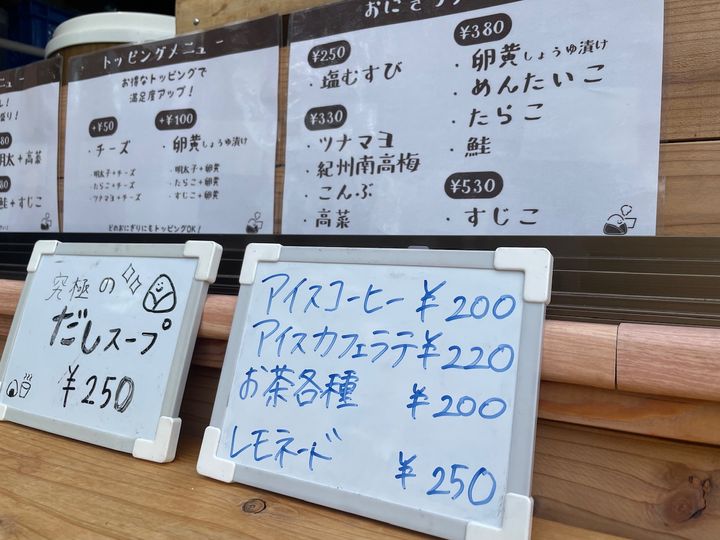 ニュー
し!
盛り!
明太+高菜
鮭+すじこ
トッピングメニュー
お得なトッピングで
満足度アップ!
+¥50
・チーズ
明太子+チーズ
たらこ+チーズ
ツナマヨ+チーズ
+¥100
・卵黄しょうゆ漬け
・明太子+卵黄
・たらこ+卵黄
・すじこ+卵黄
どのおにぎりにもトッピングOK!
おにぎり
¥250
・塩むすび
¥330
・ツナマヨ
・紀州南高梅
・こんぶ
・高菜
¥380
・卵黄しょうゆ漬け
・めんたいこ
・たらこ
・鮭
¥530
・すじこ
究極の
だしスープ
¥250
アイスコーヒー ¥200
アイスカフェラテ ¥220
お茶各種 ¥200
レモネード ¥250